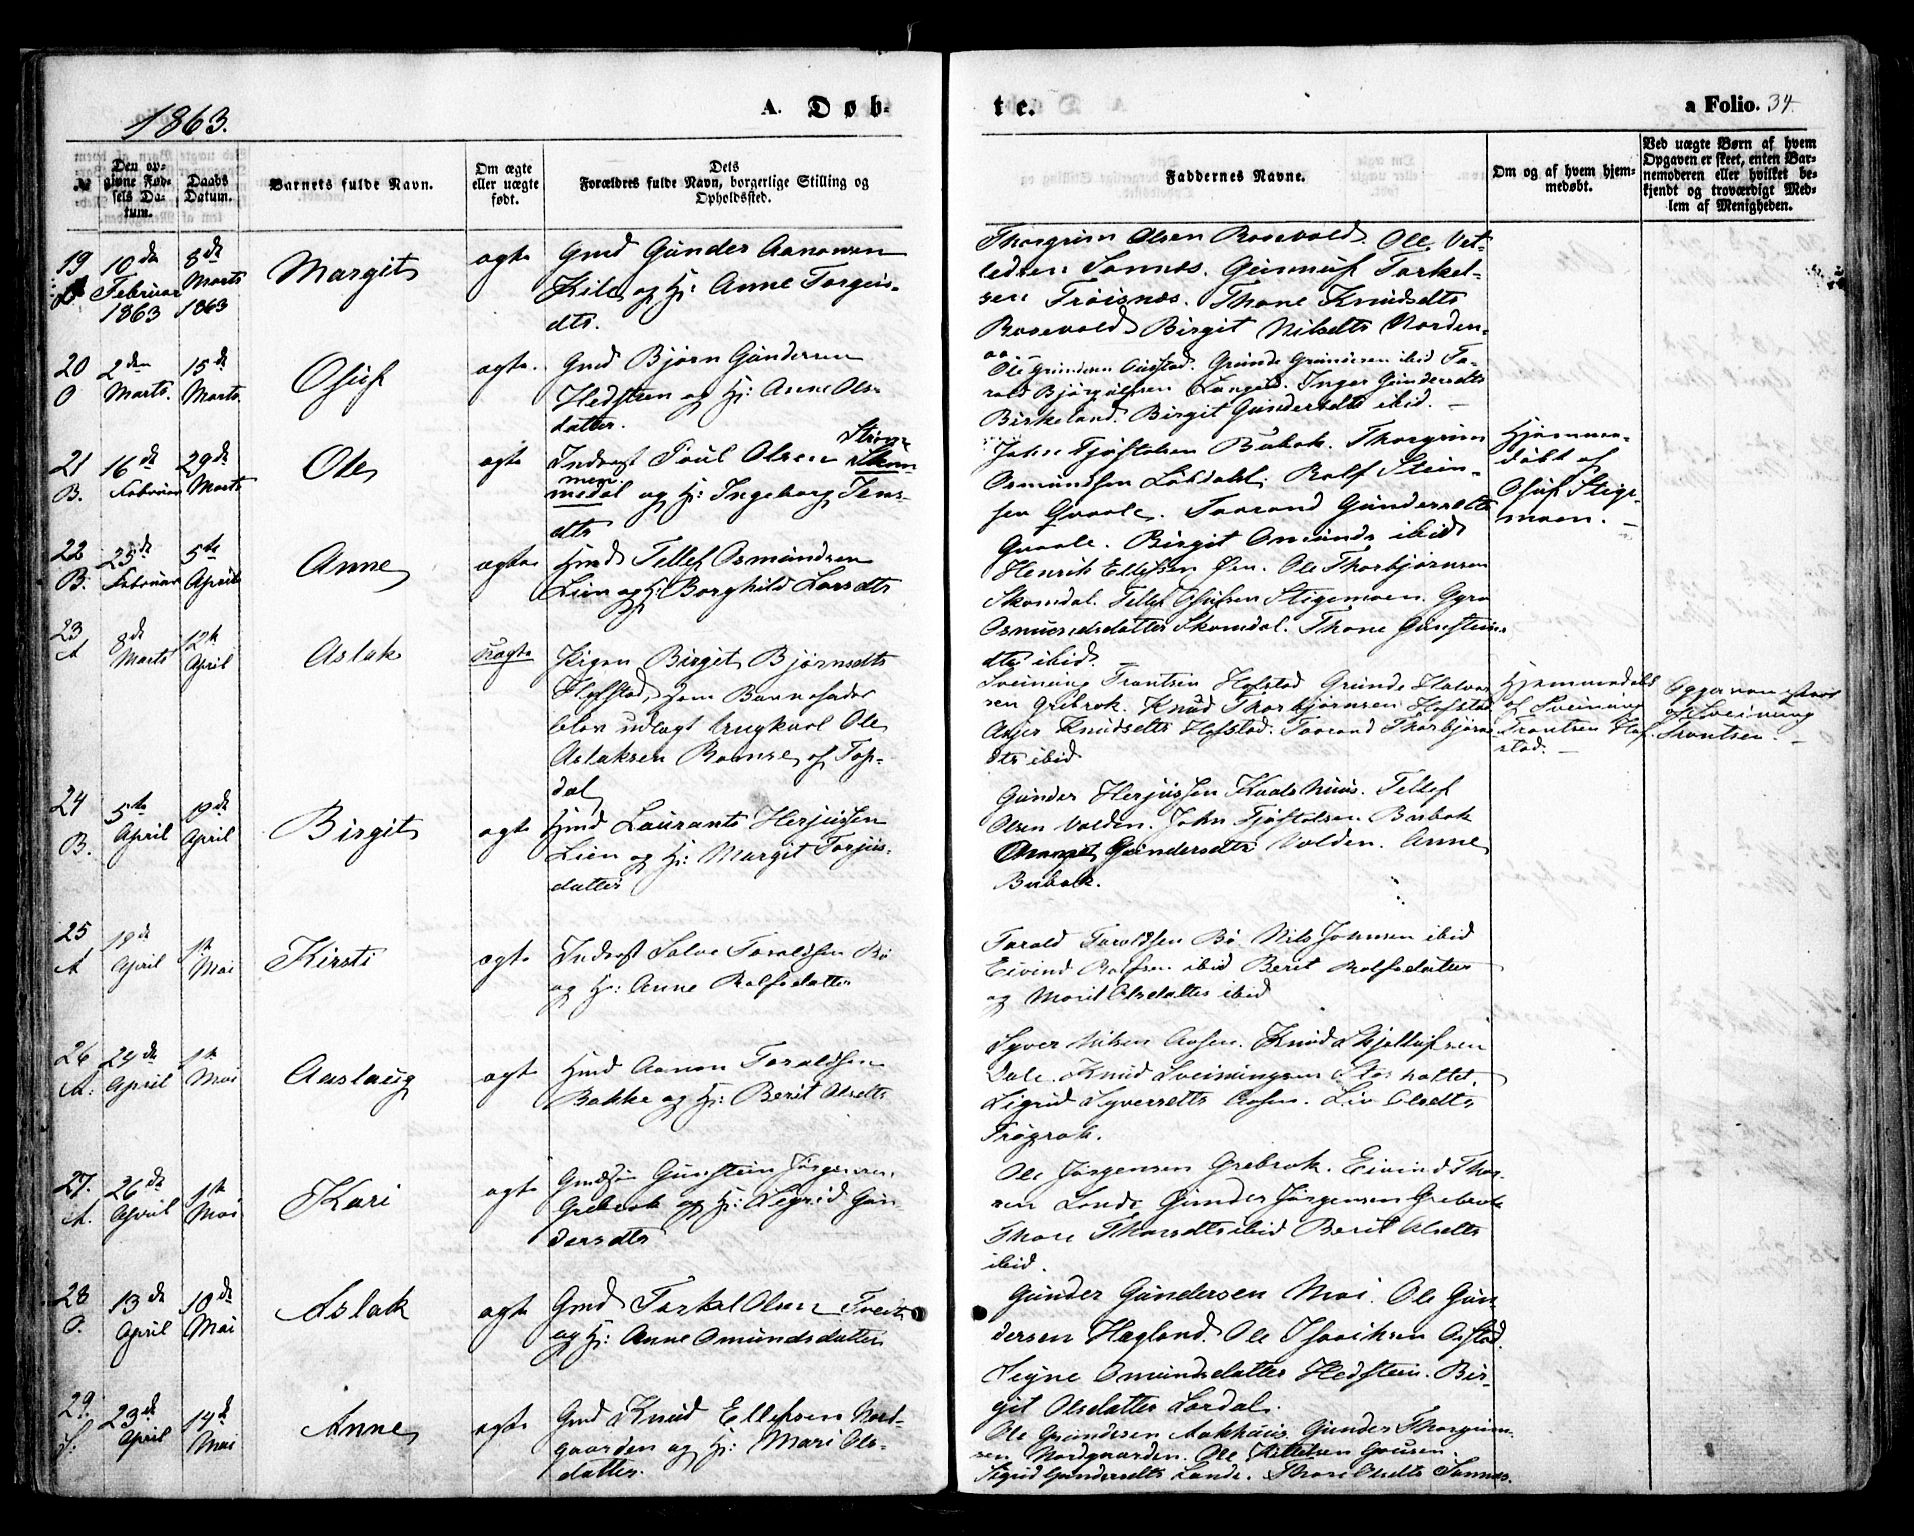 1863.
A. Døb-
te.
a Folio. 34.
№
Den op-
givne Fød-
sels Da-
tum.
Daabs
Datum.
Barnets fulde Navn.
Om ægte
eller uægte
født.
Dets
Forældres fulde Navn, borgerlige Stilling og
Opholdssted.
Faddernes Navne.
Om og af hvem hjem-
medøbt.
Ved uægte Børn af hvem
Opgaven er skeet, enten Bar-
nemoderen eller hvilket be-
kjendt og troværdigt Med-
lem af Menigheden.
19
10de
Februar
1863
8de
Marts
1863
Margit
ægte
Gmd Gunder Aanonsen
Kile og H: Anne Torgeis-
dtr.
Thorgrim Olsen Rosevold. Ole Vet-
ledsen Sannes. Gunnuf Torkel-
sen Frøisnæs. Thone Knudsdtr
Rosevold Birgit Nilsdtr Norden-
aa
20
O
2den
Marts.
15de
Marts
Osuf
ægte.
Gmd Bjørn Gundersen
Hedsteen og H: Anne Ols-
datter.
Ole Gundersen Austad. Gunde Gundersen ibid Ta-
rald Bjørgulfsen Langeid. Inger Gundersdtr
Birkeland. Birgit Gundersdtr ibid.
21
B.
16de
Februar
29de
Marts
Ole
ægte
Inderst Poul Olsen
medal og H: Ingeborg Jens-
dtr
John Fjøstolsen Bubak. Thorgrim
Osmundsen Løbdahl. Rolf Stein-
sen Qvaale. Taarand Gundersdtr
Qvaale. Birgit Omunds ibid
Hjemme-
døbt af
Osuf Stige-
moen.
22
B.
25de
Februar
5te
April
Anne
ægte
Hmd Tellef Osmundsen
Lien og H: Borghild Larsdtr
Henrik Ellefsen Øen. Ole Thorbjørnsen
Skomdal. Tellef Osufsen Stigemoen. Gyro
Osmundsdatter Skomdal. Thone Gunsteins
dtr ibid.
23
A
8de
Marts
12te
April
Aslak
uægte
Pigen Birgit Bjørnsdtr
Hofstad, som Barnefader
blev udlagt Ungkarl Ole
Aslaksen Romse, af Top-
dal
Sveining Trontsen Hofstad Gunde Halvor
sen Grebrok. Knud Thorbjørnsen Hofstad
Knudsdtr Hofstad. Taarand Thorbjørns
dtr ibid
Hjemmedøbt
af Sveining
Trontsen Hof-
stad.
Opgaven
af Sveining
Trontsen.
24
B.
5te
April
19de
April
Birgit
ægte
Hmd Laurants Herjusen
Lien og H: Margit Torjus-
datter
Gunder Herjusen Kaashuus. Tellef
Olsen Volden. John Fjøstolsen Bubak
Gundersdtr Volden. Anne
Bubak.
25
A
19de
April
1te
Mai
Kirsti
ægte
Inderst Salve Taraldsen Bø
og H: Anne Rolfsdatter
Tarald Taraldsen Bø Nils Johnsen ibid
Eivind Rolfsen ibid Berit Rolfsdatter
og Marit Olsdatter ibid
26
A.
24de
April
1te
Mai
Aaslaug
ægte
Hmd Aanon Taraldsen
Bakke og H: Berit Olsdtr
Syver Nilsen Aasen. Knud Kjellufsen
Dale. Knud Sveiningsen Storhattet.
Sigrid Syversdtr Aasen. Liv Olsdtr
Frøyrak.
27.
A.
26de
April
1te
Mai
Kari
ægte
Gmdsøn Gunstein Jørgensen
Grebrok og H: Sigrid Gun-
dersdtr
Ole Jørgensen Grebrok. Eivind Thor-
sen Lande Gunder Jørgensen Grebrok
Thore Thorsdtr ibid Berit Olsdtr
ibid.
28
O.
13de
April
10de
Mai
Aslak
ægte
Gmd Torkel Olsen Tveit
og H: Anne Omundsdatter
Gunder Gundersen Moi. Ole Gun-
dersen Hægland. Ole Isaaksen Austad.
Signe Omundsdatter Hedstein. Bir-
git Olsdatter Lordal.
29.
S.
23de
April
14de
Mai
Anne
ægte
Gmd Knud Ellefsen Nord-
gaarden og H: Mari Ols-
datter.
Ole Gundersen Aakhuus. Gunder Thorgrim-
sen Nordgaarden. Ole Kittelsen
Sigrid Gundersdtr Lande. Thore Olsdtr Sannes.